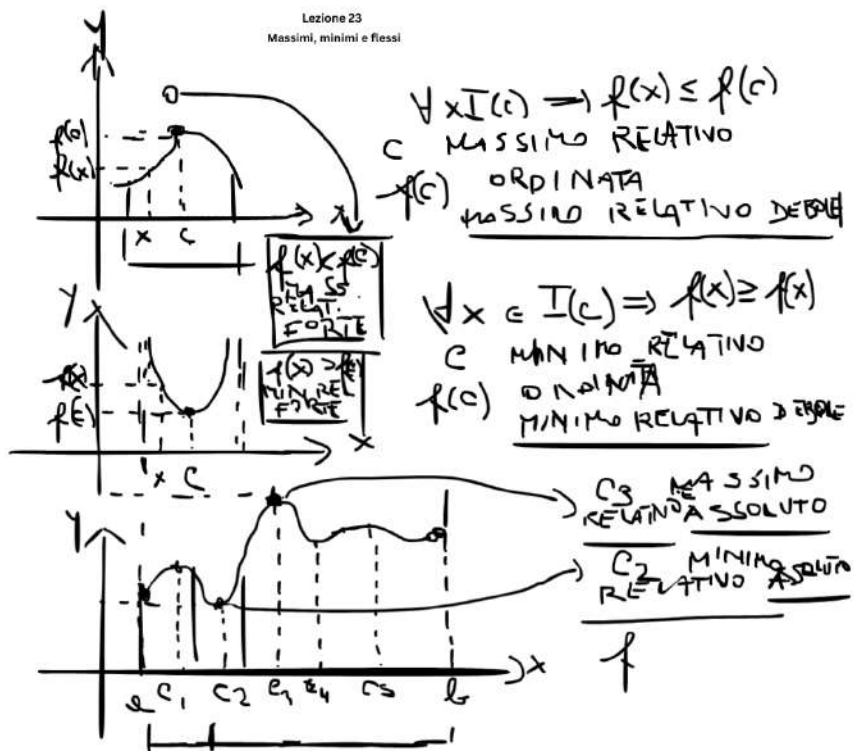 Lezione 23
Massimi, minimi e flessi
Y
f(c)
f(x)
x c
X
∀ x I(c) ⟹ f(x) ≤ f(c)
C MASSIMO RELATIVO
f(c) ORDINATA
MASSIMO RELATIVO DEBOLE
f(x) < f(c)
MASS
RELAT.
FORTE
Y
f(x)
f(c)
x c
X
f(x) > f(c)
MIN REL
FORTE
∀ x ∈ I(c) ⟹ f(x) ≥ f(x)
C MINIMO RELATIVO
f(c) ORDINATA
MINIMO RELATIVO DEBOLE
Y
a c1 c2 c3 c4 c5 b
X
C3 MASSIMO
RELATIVO ASSOLUTO
C2 MINIMO
RELATIVO ASSOLUTO
f